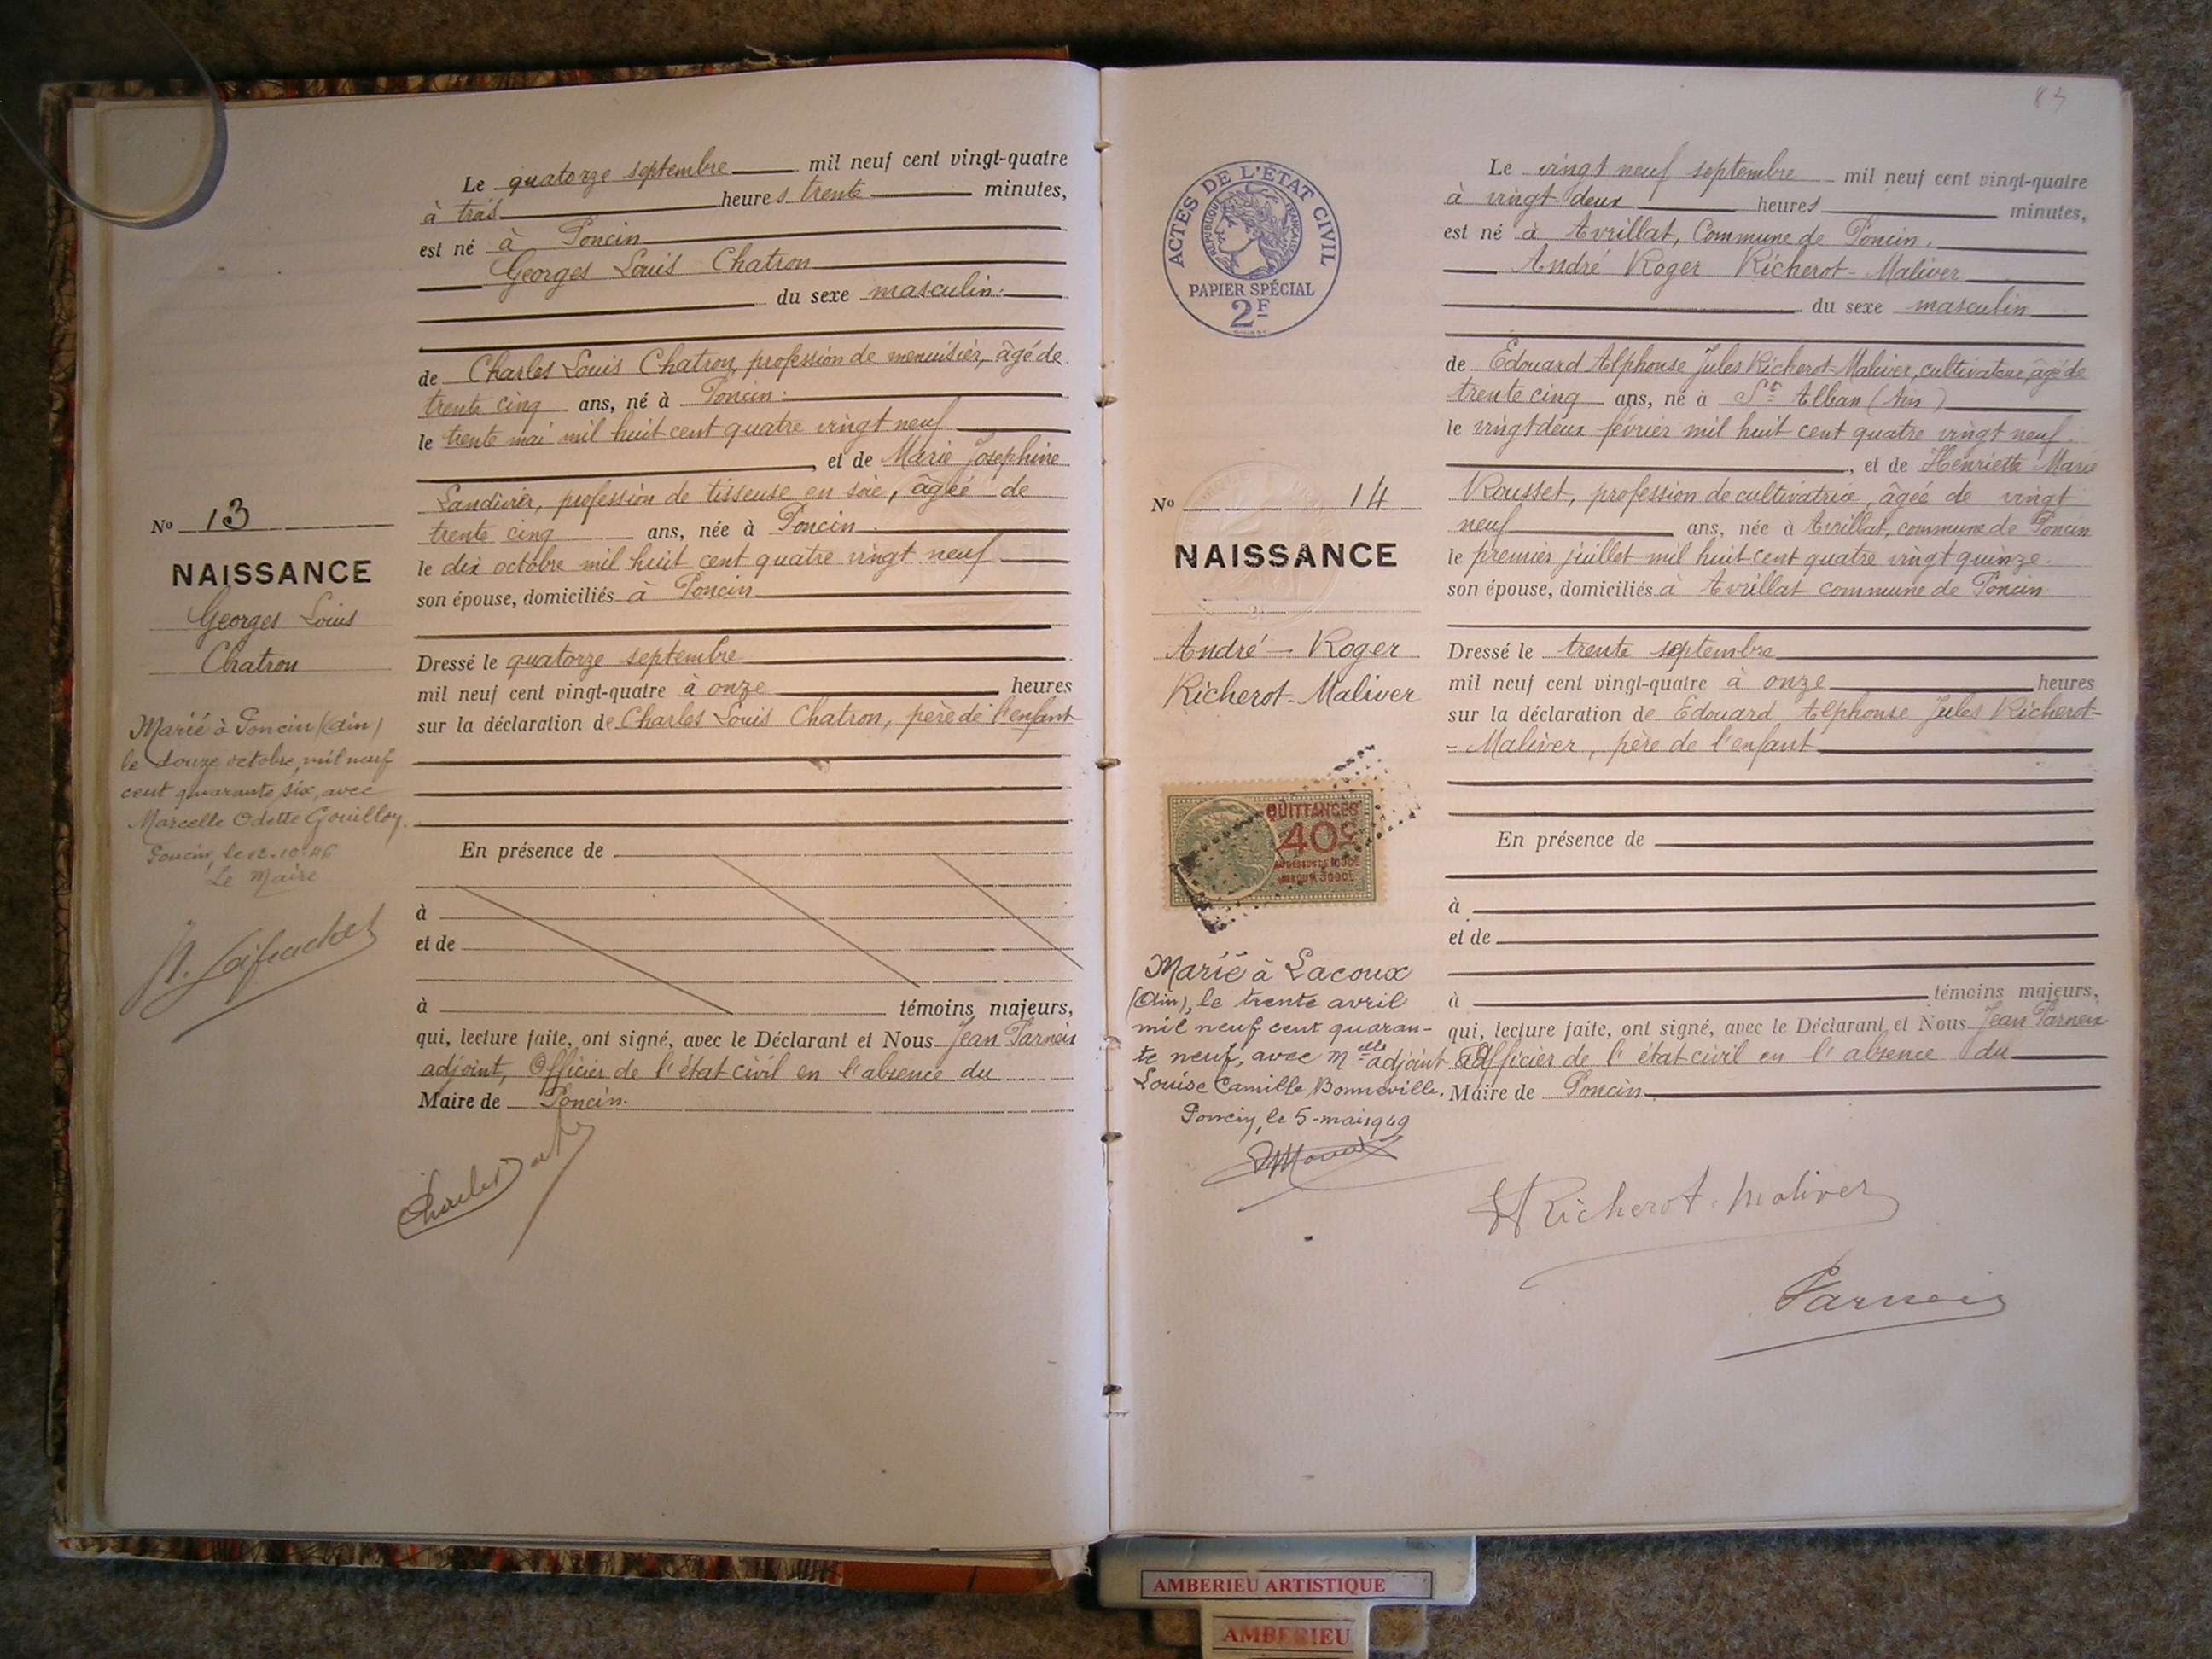 Le quatorze septembre mil neuf cent vingt-quatre
à trois heures trente minutes,
est né à Poncin
Georges Louis Chatron
du sexe masculin.
de Charles Louis Chatron, profession de menuisier, âgé de
trente cinq ans, né à Poncin.
le trente mai mil huit cent quatre vingt neuf
, et de Marie Joséphine
profession de tisseuse en soie, âgée de
trente cinq ans, née à Poncin
le dix octobre mil huit cent quatre vingt neuf
son épouse, domiciliés à Poncin
Dressé le quatorze septembre
mil neuf cent vingt-quatre à onze heures
sur la déclaration de Charles Louis Chatron, père de l'enfant
En présence de
à
et de
à témoins majeurs,
qui, lecture faite, ont signé, avec le Déclarant et Nous Jean Parneix
adjoint, Officier de l'état civil en l'absence du
Maire de Poncin.
No 13
NAISSANCE
Georges Louis
Chatron
Marié à Poncin (Ain)
le douze octobre, mil neuf
cent quarante six, avec
Marcelle Odette
Poncin, le 12.10.46
Le Maire
84
ACTES DE L'ÉTAT CIVIL
RÉPUBLIQUE FRANÇAISE
PAPIER SPÉCIAL
2F
No 14
NAISSANCE
André-Roger
Richerot-Maliver
QUITTANCES
40c
Marié à Lacoux
(Ain), le trente avril
mil neuf cent quaran-
te neuf, avec Melle
Louise Camille Bonneville.
Poncin, le 5-mai 1949
Le vingt neuf septembre mil neuf cent vingt-quatre
à vingt deux heures minutes,
est né à Avrillat, Commune de Poncin.
André Roger Richerot-Maliver
du sexe masculin
de Edouard Alphonse Jules Richerot-Maliver, cultivateur, âgé de
trente cinq ans, né à St Alban (Ain)
le vingt deux février mil huit cent quatre vingt neuf.
, et de Henriette Marie
Rousset, profession de cultivatrice, âgée de vingt
neuf ans, née à Avrillat, commune de Poncin
le premier juillet mil huit cent quatre vingt quinze.
son épouse, domiciliés à Avrillat commune de Poncin
Dressé le trente septembre
mil neuf cent vingt-quatre à onze heures
sur la déclaration de Edouard Alphonse Jules Richerot-
-Maliver, père de l'enfant
En présence de
à
et de
à témoins majeurs,
qui, lecture faite, ont signé, avec le Déclarant et Nous Jean Parneix
adjoint Officier de l'état civil en l'absence du
Maire de Poncin
Richerot-Maliver
Parneix
AMBERIEU ARTISTIQUE
AMBERIEU